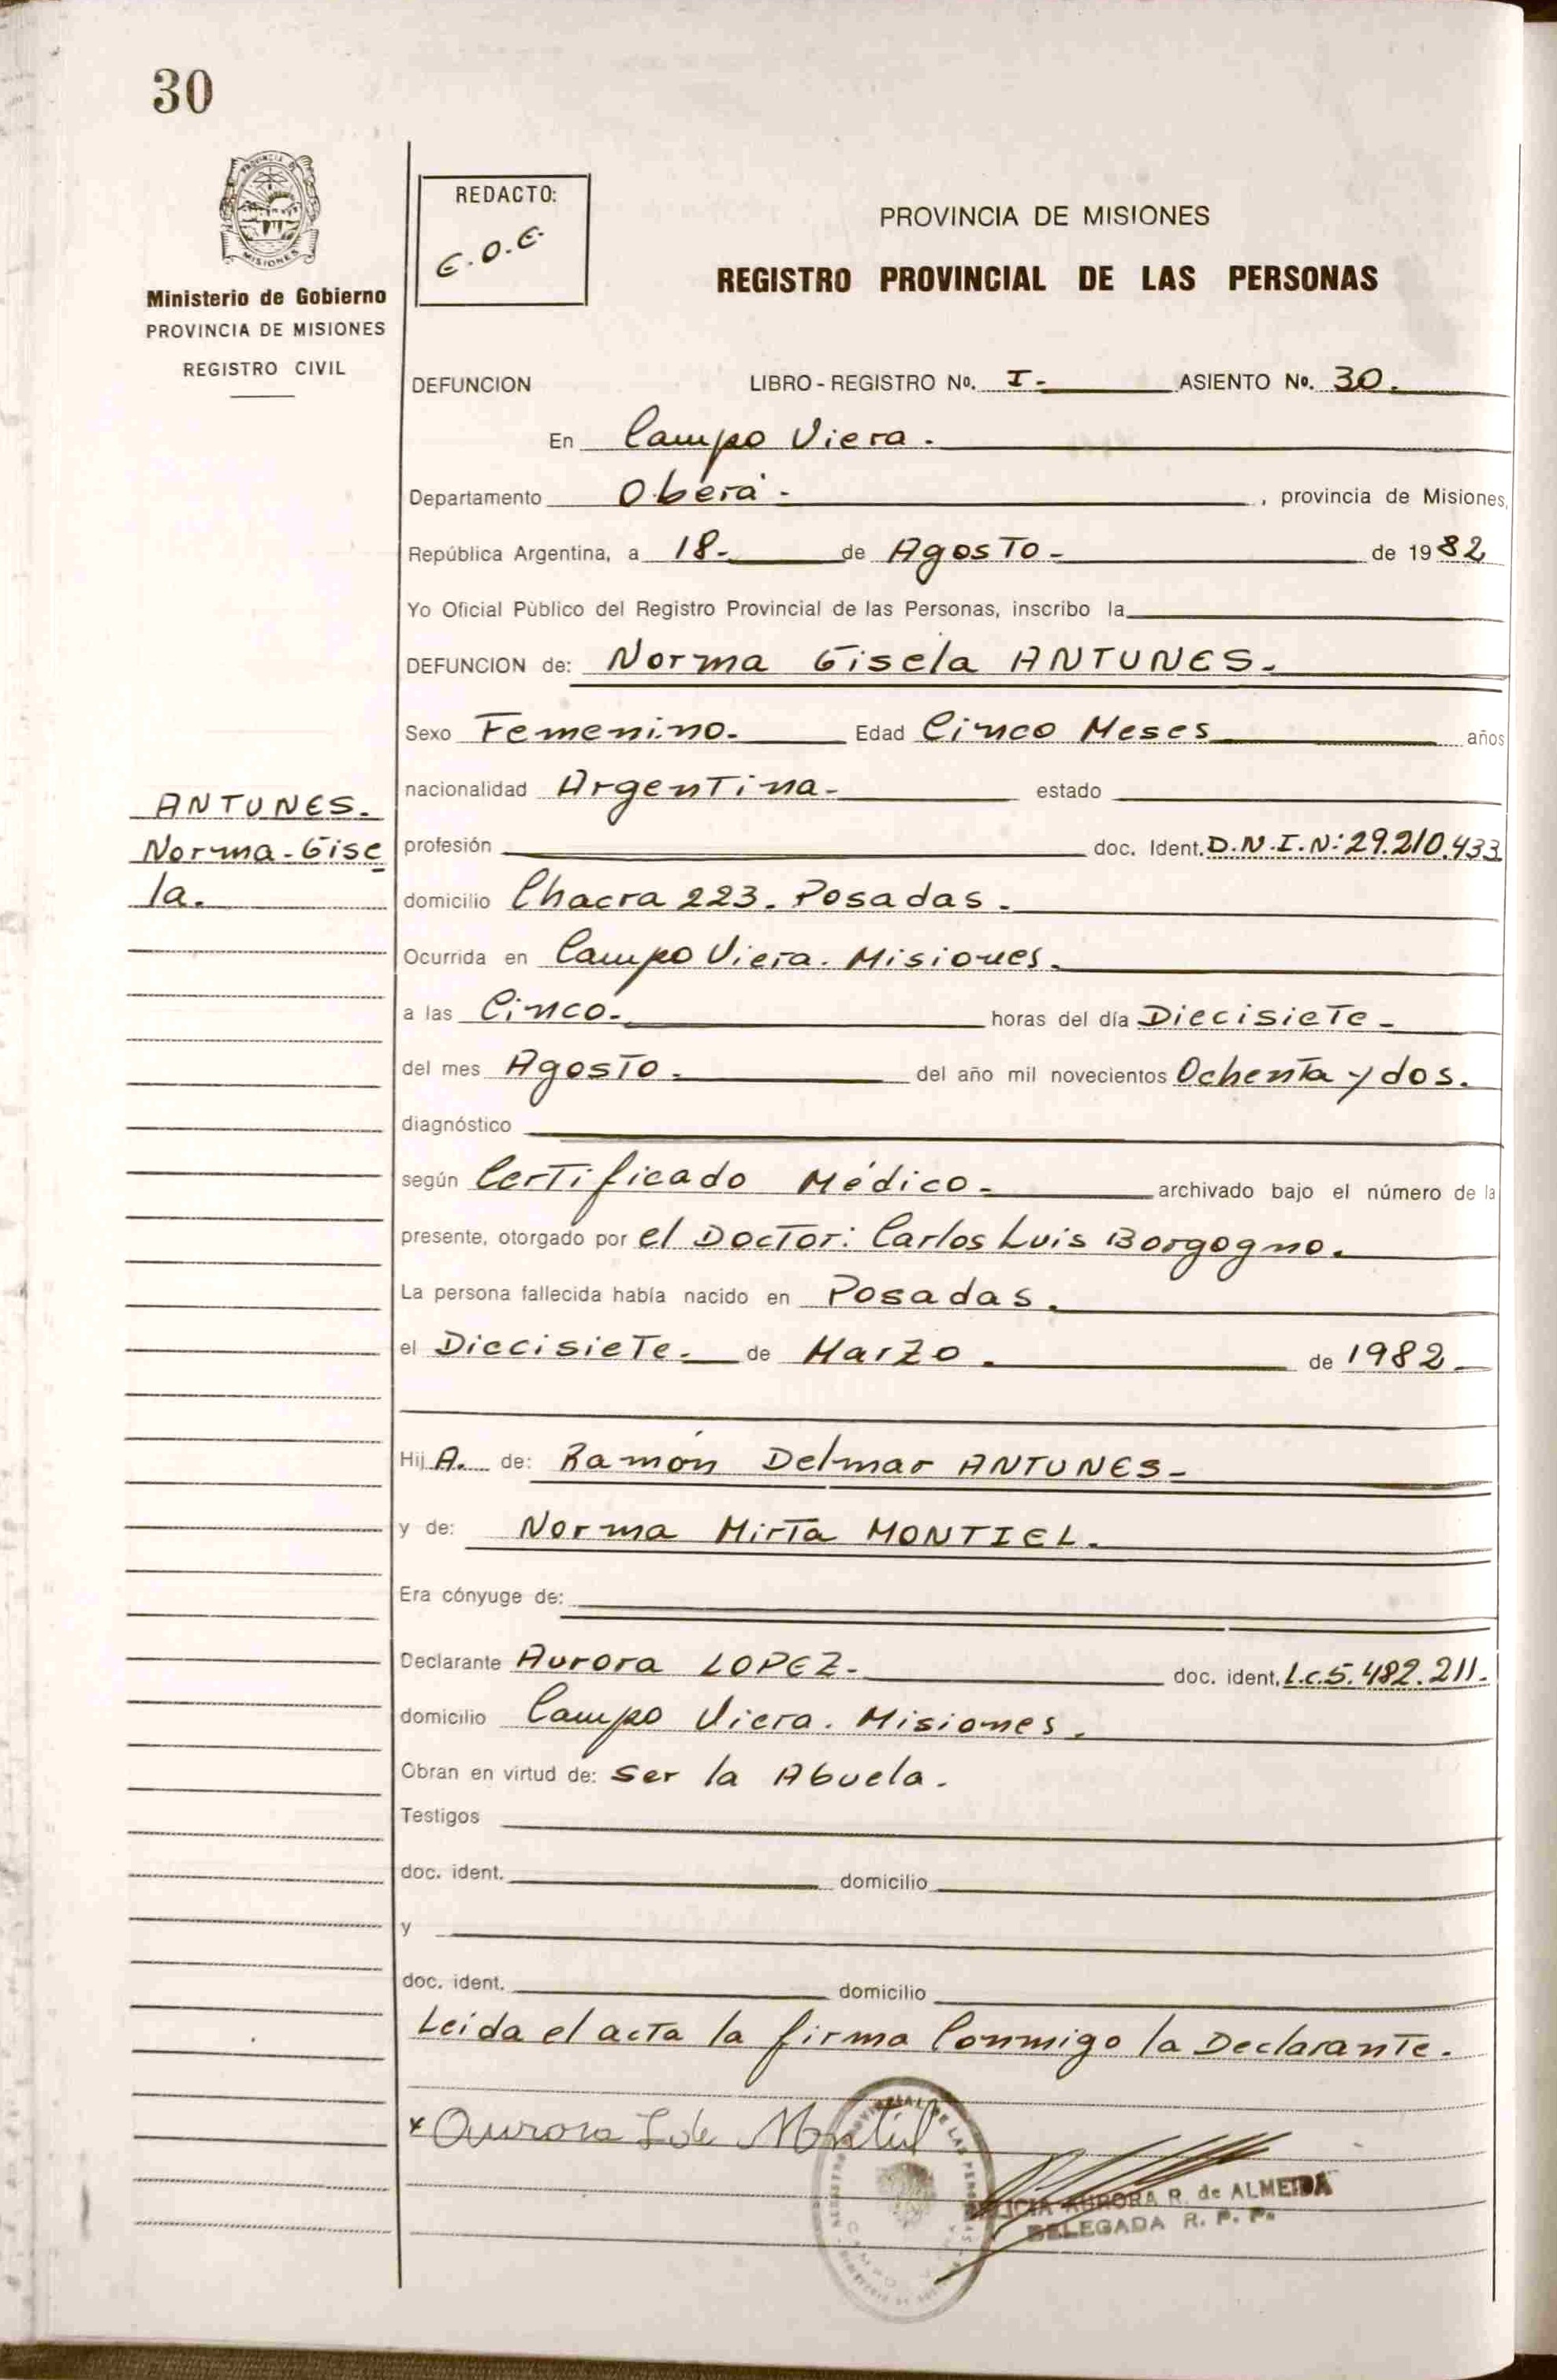 30
PROVINCIA DE
MISIONES
Ministerio de Gobierno
PROVINCIA DE MISIONES
REGISTRO CIVIL
REDACTO:
E.O.E.
PROVINCIA DE MISIONES
REGISTRO PROVINCIAL DE LAS PERSONAS
DEFUNCION LIBRO - REGISTRO No. I- ASIENTO No. 30.
En Campo Viera.
Departamento Oberá - , provincia de Misiones,
República Argentina, a 18- de Agosto - de 1982
Yo Oficial Público del Registro Provincial de las Personas, inscribo la
DEFUNCION de: Norma Gisela ANTUNES.
Sexo Femenino. Edad Cinco Meses años
nacionalidad Argentina- estado
ANTUNES.
Norma-Gise
la.
profesión doc. Ident. D.N.I.N: 29.210.433
domicilio Chacra 223. Posadas.
Ocurrida en Campo Viera. Misiones.
a las Cinco. horas del día Diecisiete -
del mes Agosto. del año mil novecientos Ochenta y dos.
diagnóstico
según Certificado Médico- archivado bajo el número de la
presente, otorgado por el Doctor: Carlos Luis Borgogno.
La persona fallecida había nacido en Posadas.
el Diecisiete. de Marzo. de 1982
Hij A. de: Ramón Delmar ANTUNES-
y de: Norma Mirta MONTIEL.
Era cónyuge de:
Declarante Aurora LOPEZ- doc. ident. L.C.5.482.211.
domicilio Campo Viera. Misiones.
Obran en virtud de: Ser la Abuela.
Testigos
doc. ident. domicilio
y
doc. ident. domicilio
Leida el acta la firma Conmigo la Declarante.
x Aurora L de Montiel
AURORA R. de ALMEIDA
DELEGADA R. P. P.